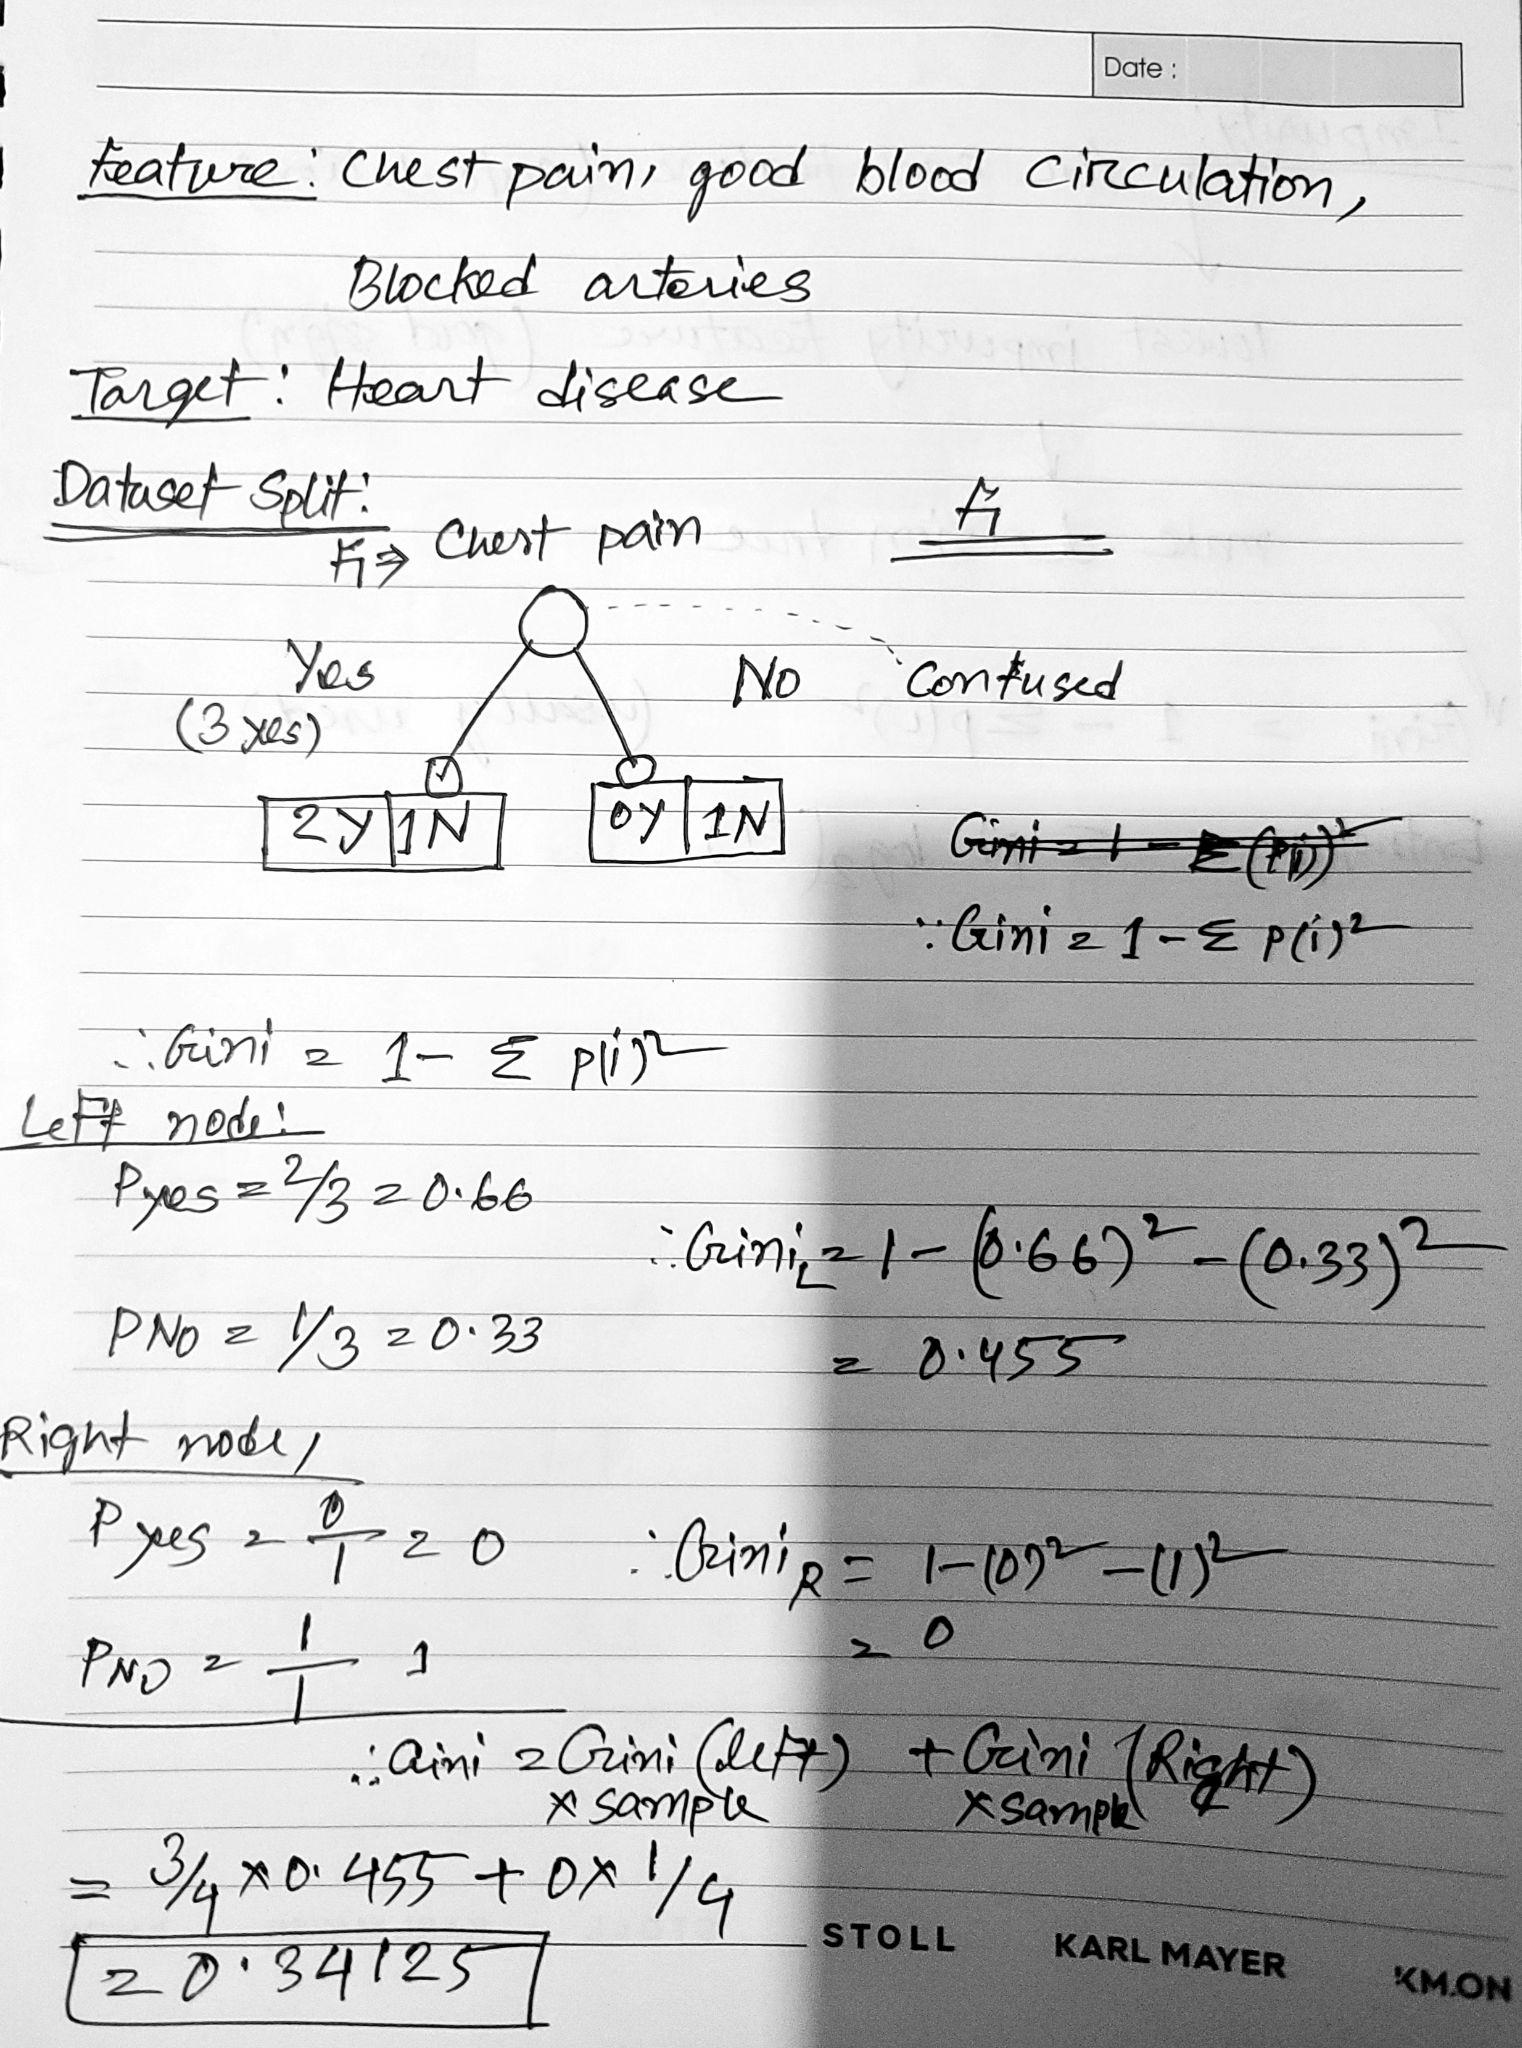 Date :
Feature: Chest pain, good blood circulation,
Blocked arteries
Target: Heart disease
Dataset Split:
F1
F1 ⇒ Chest pain
Yes
(3 yes)
No
Confused
2Y | 1N
0Y | 1N
Gini = 1 - Σ (P(i))²
∵ Gini = 1 - Σ P(i)²
∴ Gini = 1 - Σ P(i)²
Left node:
Pyes = 2/3 = 0.66
∴ Gini L = 1 - (0.66)² - (0.33)²
PNO = 1/3 = 0.33
= 0.455
Right node,
Pyes = 0/1 = 0
∴ Gini R = 1-(0)² - (1)²
= 0
PNO = 1/1 1
∴ Gini = Gini (Left) + Gini (Right)
x sample x sample
= 3/4 x 0.455 + 0 x 1/4
= 0.34125
STOLL KARL MAYER KM.ON